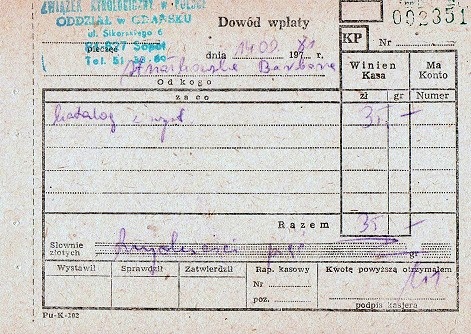 ZWIĄZEK KYNOLOGICZNY w POLSCE
ODDZIAŁ w GDAŃSKU
ul. Sikorskiego 6
81-827 Sopot
Tel. 51-38-60
pieczęć
Dowód wpłaty
002351
KP Nr
dnia 14.09. 1971
Barbara
Od kogo
za co
Winien Kasa
Ma Konto
zł gr Numer
Katalog z wyst 35 –
Razem 35 –
Słownie złotych trzydzieści pięć gr
Wystawił Sprawdził Zatwierdził Rap. kasowy Kwotę powyższą otrzymałem
Nr
poz.
podpis kasjera
Pu-K-202